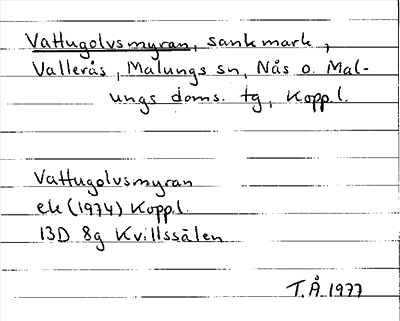 Vattugolvsmyran, sankmark,
Vallerås, Malungs sn, Nås o. Mal-
ungs doms. tg, Kopp.l.
Vattugolvsmyran
ek (1974) Kopp.l.
13D 8g Kvillssälen
T.Å 1977